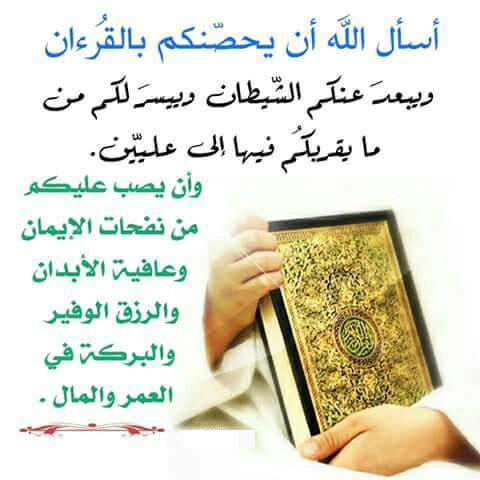 أسأل الله أن يحصّنكم بالقُرءان
ويبعدَ عنكم الشّيطان وييسرَ لكم من
ما يقربكُم فيها إلى علييّن.
وأن يصب عليكم
من نفحات الإيمان
وعافية الأبدان
والرزق الوفير
والبركة في
العمر والمال .